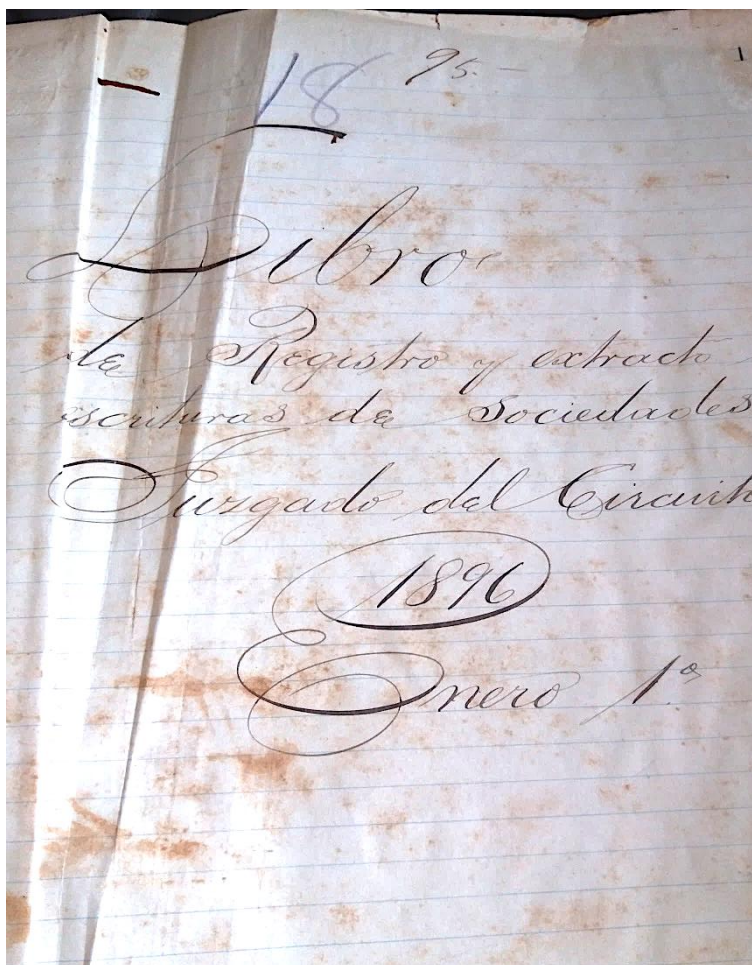 18 95.-
1
Libro
de Registro y extracto
escrituras de Sociedades
Juzgado del Circuito
1896
Enero 1º